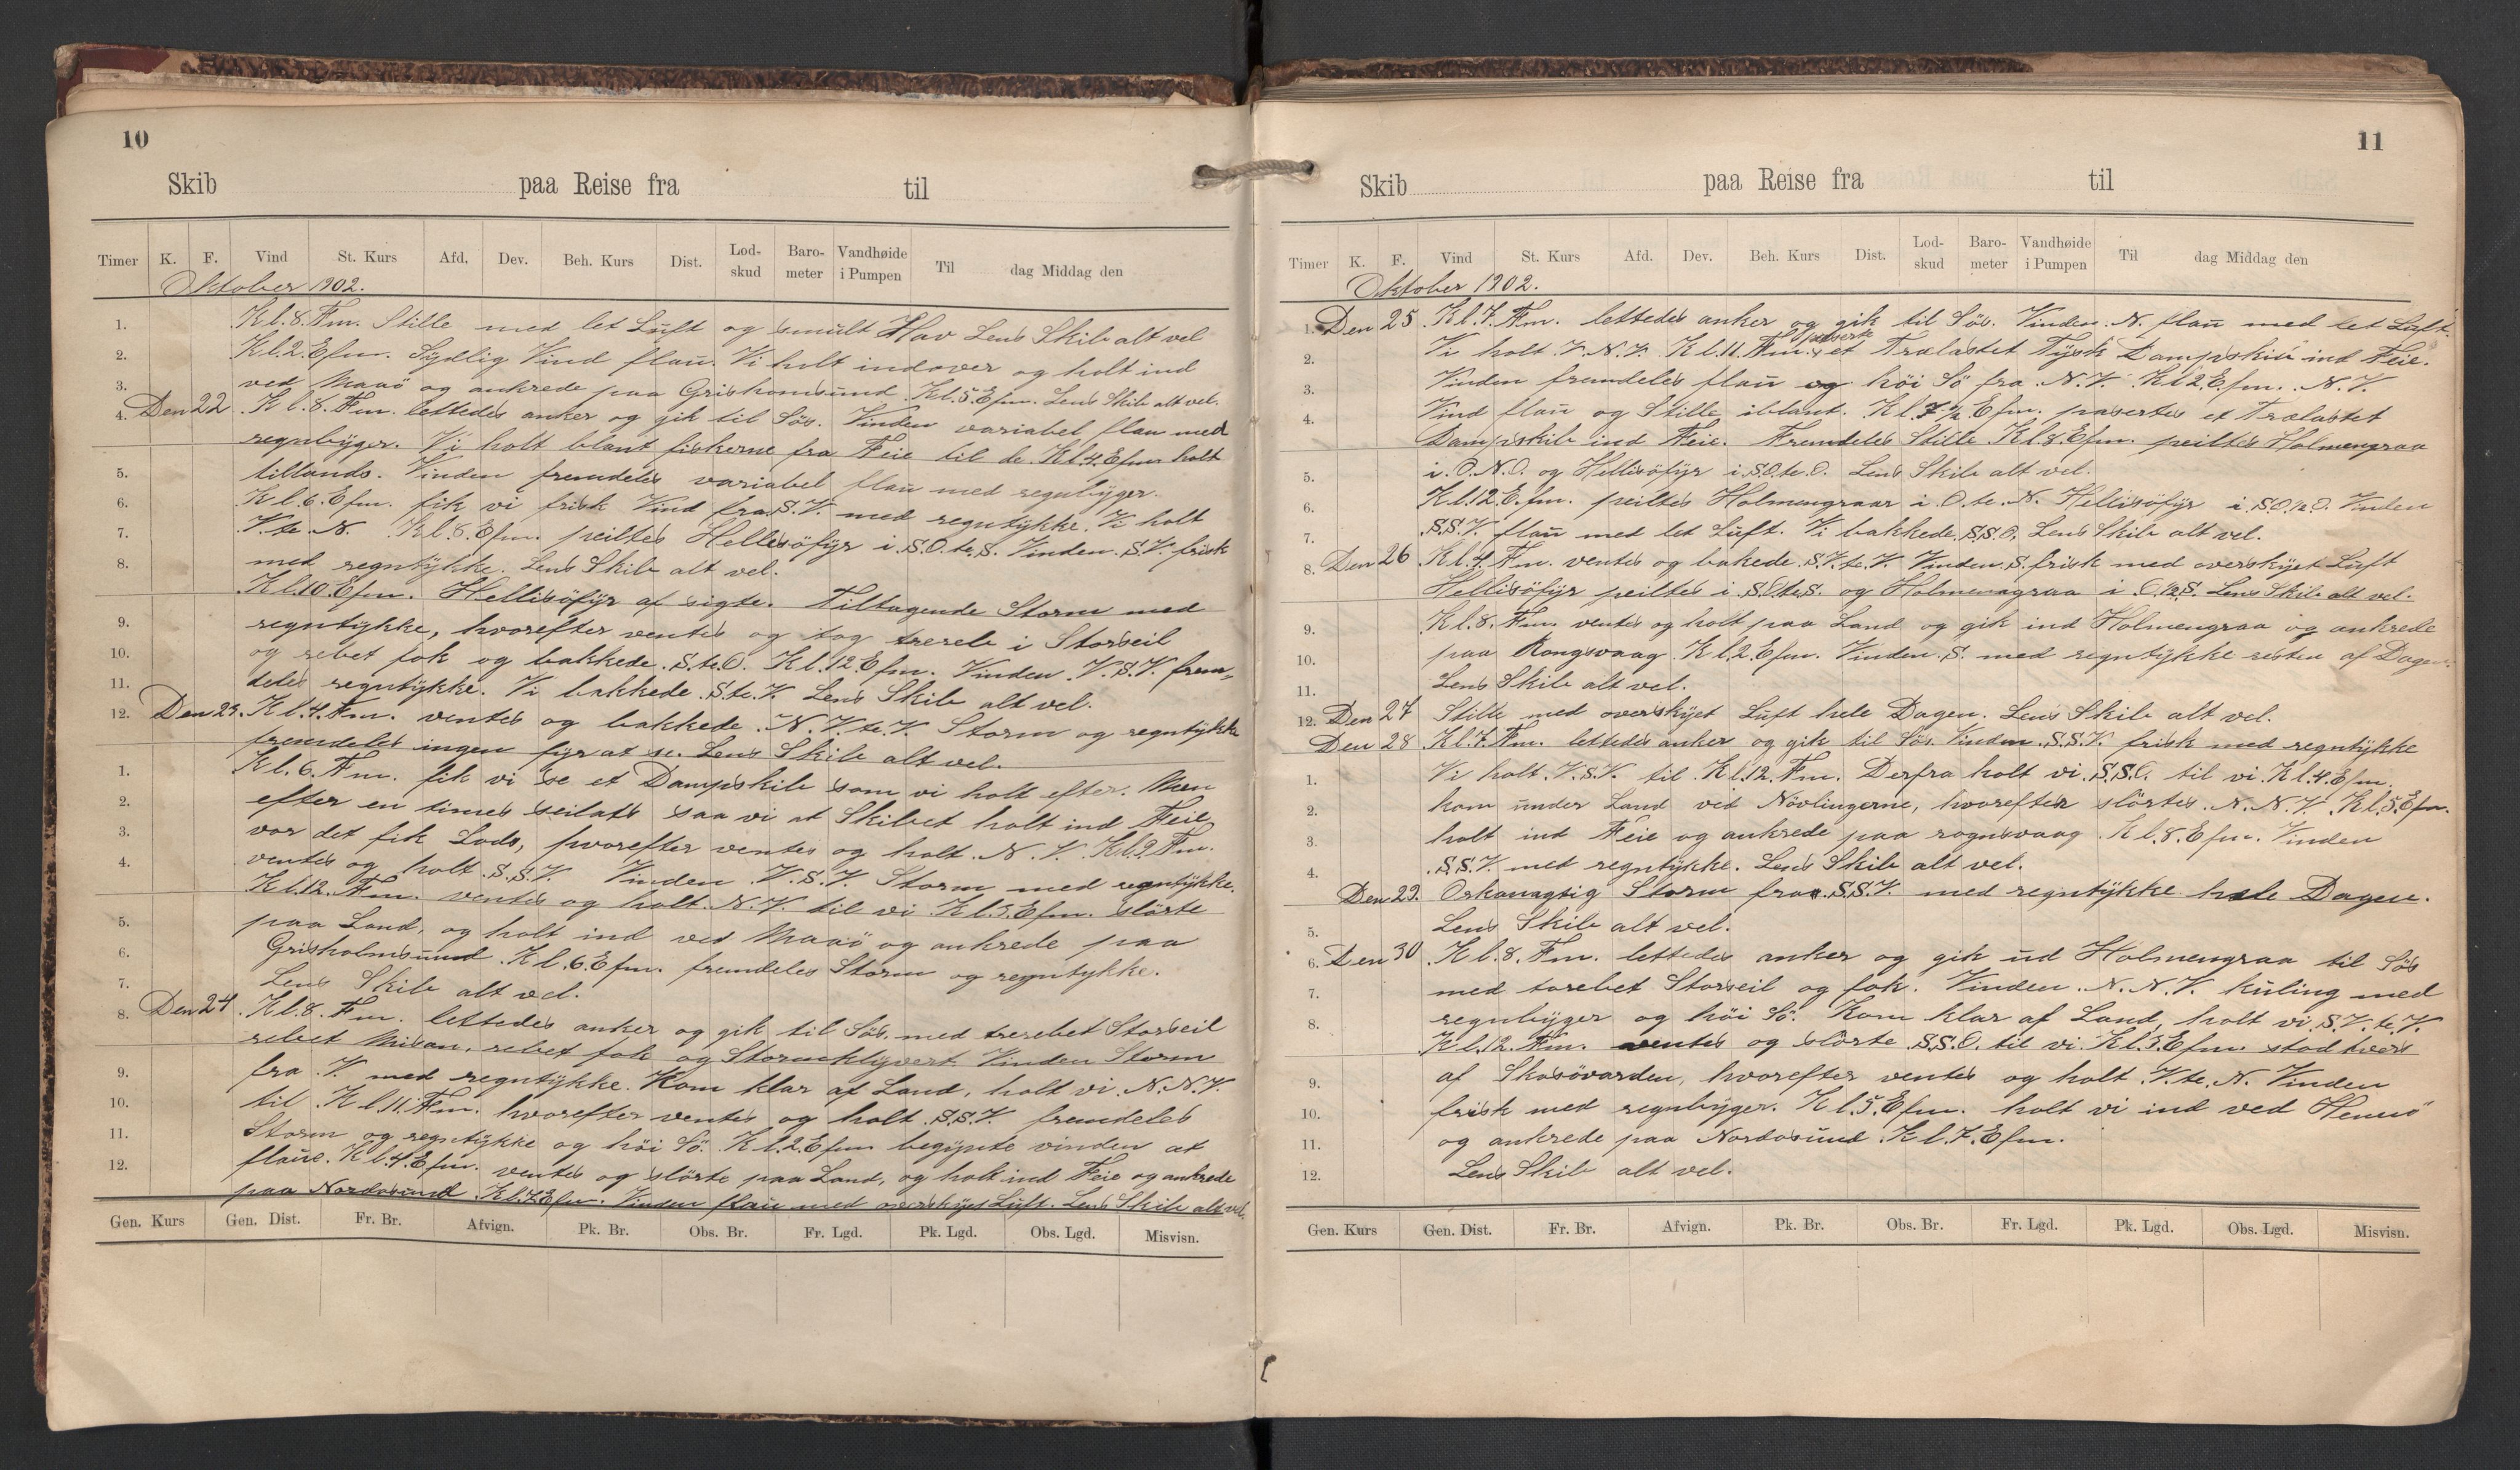 10
Skib paa Reise fra til
Timer K. F. Vind St. Kurs Afd. Dev. Beh. Kurs Dist. Lod-skud Baro-meter Vandhøide i Pumpen Til dag Middag den
Oktober 1902.
1. Kl. 8. Fm. Stille med let Luft og smult Hav Lens Skib alt vel
2. Kl. 2. Efm. Sydlig Vind flau. Vi holt indover og holt ind
3. ved Maaö og ankrede paa Grishomsund. Kl. 5. Efm. Lens Skib alt vel.
4. Den 22. Kl. 8. Fm. lettedes anker og gik til Sös. Vinden variabel flau med
regnbyger. Vi holt blant fiskerne fra Feie til de. Kl. 4. Efm. holt
5. tillands. Vinden fremdeles variabel flau med regnbyger.
6. Kl. 6. Efm. fik vi frisk Vind fra S.V. med regntykke. Vi holt
7. V. te. N. Kl. 8. Efm. peiltes Hellisöfyr i S.O. te. S. Vinden. S.V. frisk
8. med regntykke. Lens Skib alt vel.
Kl. 10. Efm. Hellisöfyr af sigte. Tiltagende Storm med
9. regntykke, hvorefter ventes og tog trereb i Storseil
10. og rebet fok og bakkede. S. te. O. Kl. 12. Efm. Vinden. V.S.V. frem-
11. deles regntykke. Vi bakkede. S. te. V. Lens Skib alt vel.
12. Den 23. Kl. 4. Fm. ventes og bakkede. N.V. te. V. Storm og regntykke
fremdeles ingen fyr at se. Lens Skib alt vel.
1. Kl. 6. Fm. fik vi se et Dampskib som vi holt efter. Men
2. efter en times seilads saa vi at Skibet holt ind Feie
3. vor det fik Lods, hvorefter ventes og holt. N.V. Kl. 9. Fm.
4. ventes og holt. S.S.V. Vinden. V.S.V. Storm med regntykke.
Kl. 12. Fm. ventes og holt. N.V. til vi Kl. 3. Efm. slörte
5. paa Land, og holt ind ved Maaö og ankrede paa
6. Grisholmsund. Kl. 6. Efm. fremdeles Storm og regntykke.
7. Lens Skib alt vel.
8. Den 24. Kl. 8. Fm. lettedes anker og gik til Sös. med trerebet Storseil
rebet Misan. rebet fok og Stormklyvert. Vinden Storm
9. fra V. med regntykke. Kom klar af Land, holt vi. N.N.V.
10. til Kl. 11. Fm. hvorefter ventes og holt. S.S.V. fremdeles
11. Storm og regntykke og höi Sö. Kl. 2. Efm begynte vinden at
12. flaue. Kl. 4. Efm. ventes og slörte paa Land, og holt ind Feie og ankrede
paa Nordosund. Kl. 7. Efm. Vinden flau med overskyet Luft. Lens Skib alt vel.
Gen. Kurs Gen. Dist. Fr. Br. Afvign. Pk. Br. Obs. Br. Fr. Lgd. Pk. Lgd. Obs. Lgd. Misvisn.
11
Skib paa Reise fra til
Timer K. F. Vind St. Kurs Afd. Dev. Beh. Kurs Dist. Lod-skud Baro-meter Vandhøide i Pumpen Til dag Middag den
Oktober 1902.
1. Den 25. Kl. 7. Fm. lettedes anker og gik til Sös. Vinden. N. flau med let Luft.
2. Vi holt V.N.V. Kl. 11. Fm. paserte et Trælastet Tysk Dampskib ind Feie.
3. Vinden fremdeles flau og höi Sö fra N.V. Kl 2. Efm. N.V.
4. Vind flau og Stille iblant. Kl. 7½ Efm. pasertes et Trælastet
Dampskib ind Feie. Fremdeles Stille Kl. 8. Efm. peiltes Holmengraa
5. i. O.N.O. og Hellisöfyr i. S.O. te. O. Lens Skib alt vel.
6. Kl. 12. Efm. peiltes Holmengraar i. O. te. N. Hellisöfyr i. S.O.½.O. Vinden
7. S.S.V. flau med let Luft. Vi bakkede. S.S.O. Lens Skib alt vel.
8. Den 26 Kl. 4. Fm. ventes og bakede. S.V. te. V. Vinden. S. frisk med overskyet Luft
Hellisöfyr peiltes i. S.O. te. S. og Holmengraa i. O.½.S. Lens Skib alt vel.
9. Kl. 8. Fm. ventes og holt paa Land og gik ind Holmengraa og ankrede
10. paa Rongsvaag. Kl. 2. Efm. Vinden. S. med regntykke resten af Dagen.
11. Lens Skib alt vel.
12. Den 27 Stille med overskyet Luft hele Dagen. Lens Skib alt vel.
Den 28 Kl. 7. Fm. lettedes anker og gik til Sös. Vinden. S.S.V. frisk med regntykke
1. Vi holt. V.S.V. til Kl. 12. Fm. Derfra holt vi. S.S.O. til vi Kl. 4. Efm.
2. kom under Land ved Növlingerne, hvorefter slörtes. N.N.V. Kl. 5. Efm.
3. holt ind Feie og ankrede paa rognsvaag. Kl. 8. Efm. Vinden
4. S.S.V. met regntykke. Lens Skib alt vel.
Den 29. Orkanagtig Storm fra. S.S.V. med regntykke hele Dagen.
5. Lens Skib alt vel.
6. Den 30 Kl. 8. Fm. lettedes anker og gik ud Holmengraa til Sös
7. med torebet Storseil og fok. Vinden. N.N.V. kuling med
8. regnbyger og höi Sö. Kom klar af Land, holt vi. S.V. te. V.
Kl. 12. Fm. ventes og slörte. S.S.O. til vi. Kl. 3. Efm. stod tvers
9. af Skosövarden, hvorefter ventes og holt. V. te. N. Vinden
10. frisk med regnbyger. Kl. 5. Efm. holt vi ind ved Hennö
11. og ankrede paa Nordosund. Kl. 7. Efm.
12. Lens Skib alt vel.
Gen. Kurs Gen. Dist. Fr. Br. Afvign. Pk. Br. Obs. Br. Fr. Lgd. Pk. Lgd. Obs. Lgd. Misvisn.